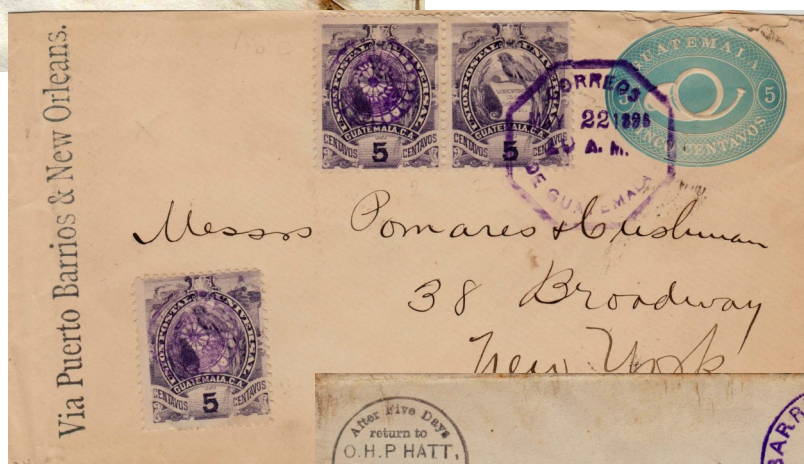 Via Puerto Barrios & New Orleans.
UNION POSTAL UNIVERSAL
GUATEMALA, C.A.
CENTAVOS 5 CENTAVOS
UNION POSTAL UNIVERSAL
GUATEMALA, C.A.
CENTAVOS 5 CENTAVOS
CORREOS
MAY 22 1896
A. M.
DE GUATEMALA
GUATEMALA
5 5
CINCO CENTAVOS
Messrs Pomares & Cushman
38 Broadway
New York
UNION POSTAL UNIVERSAL
GUATEMALA, C.A.
CENTAVOS 5 CENTAVOS
After Five Days
return to
O.H.P HATT,
BARR